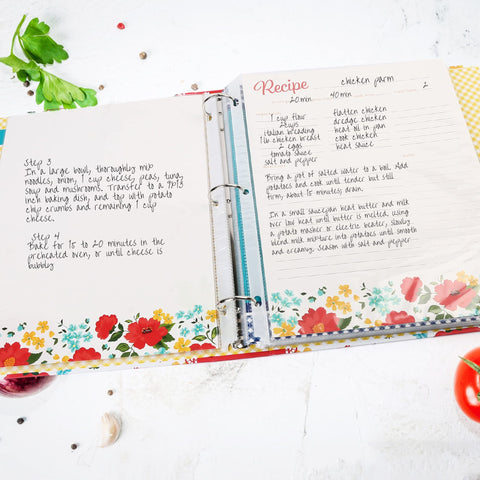 Step 3
In a large bowl, thoroughly mix
noodles, onion, 1 cup cheese, peas, tuna,
soup and mushrooms. Transfer to a 9x13
inch baking dish, and top with potato
chip crumbs and remaining 1 cup
cheese.
Step 4
Bake for 15 to 20 minutes in the
preheated oven, or until cheese is
bubbly
Recipe chicken parm
20 min 40 min 2
1 cup flour
2cups
italian breading
1 lb chicken breast
2 eggs
tomato sauce
salt and pepper
flatten chicken
dredge chicken
heat oil in pan
cook chicken
heat sauce
Bring a pot of salted water to a boil. Add
potatoes and cook until tender but still
firm, about 15 minutes; drain.
In a small saucepan heat butter and milk
over low heat until butter is melted. using
a potato masher or electric beater, slowly
blend milk mixture into potatoes until smooth
and creamy. Season with salt and pepper